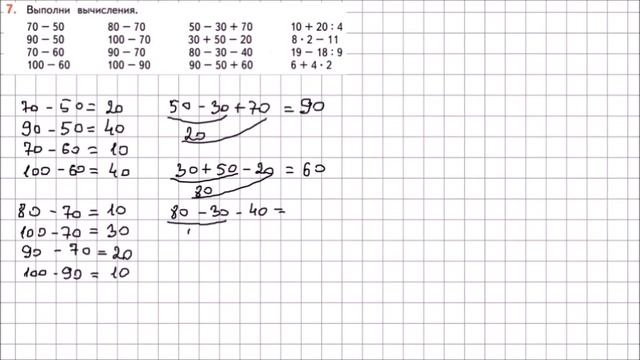 7. Выполни вычисления.
70 – 50 80 – 70 50 – 30 + 70 10 + 20 : 4
90 – 50 100 – 70 30 + 50 – 20 8 · 2 – 11
70 – 60 90 – 70 80 – 30 – 40 19 – 18 : 9
100 – 60 100 – 90 90 – 50 + 60 6 + 4 · 2
70 - 50 = 20
90 - 50 = 40
70 - 60 = 10
100 - 60 = 40
80 - 70 = 10
100 - 70 = 30
90 - 70 = 20
100 - 90 = 10
50 - 30 + 70 = 90
20
30 + 50 - 20 = 60
80
80 - 30 - 40 =